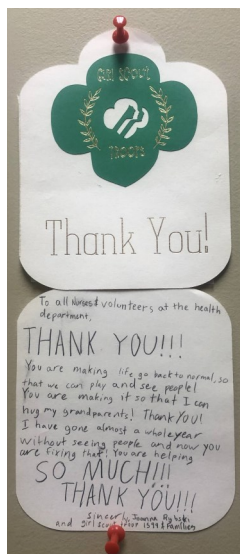 Girl Scout
Troops
Thank You!
To all Nurses & volunteers at the health
department,
THANK YOU!!!
You are making life go back to normal, so
that we can play and see people!
You are making it so that I can
hug my grandparents! Thank YOU!
I have gone almost a whole year
without seeing people and now you
are fixing that! You are helping
SO MUCH!!!
THANK YOU!!!
Sincerly, Joanna Rybski
and Girl Scout troop 1599 & Families